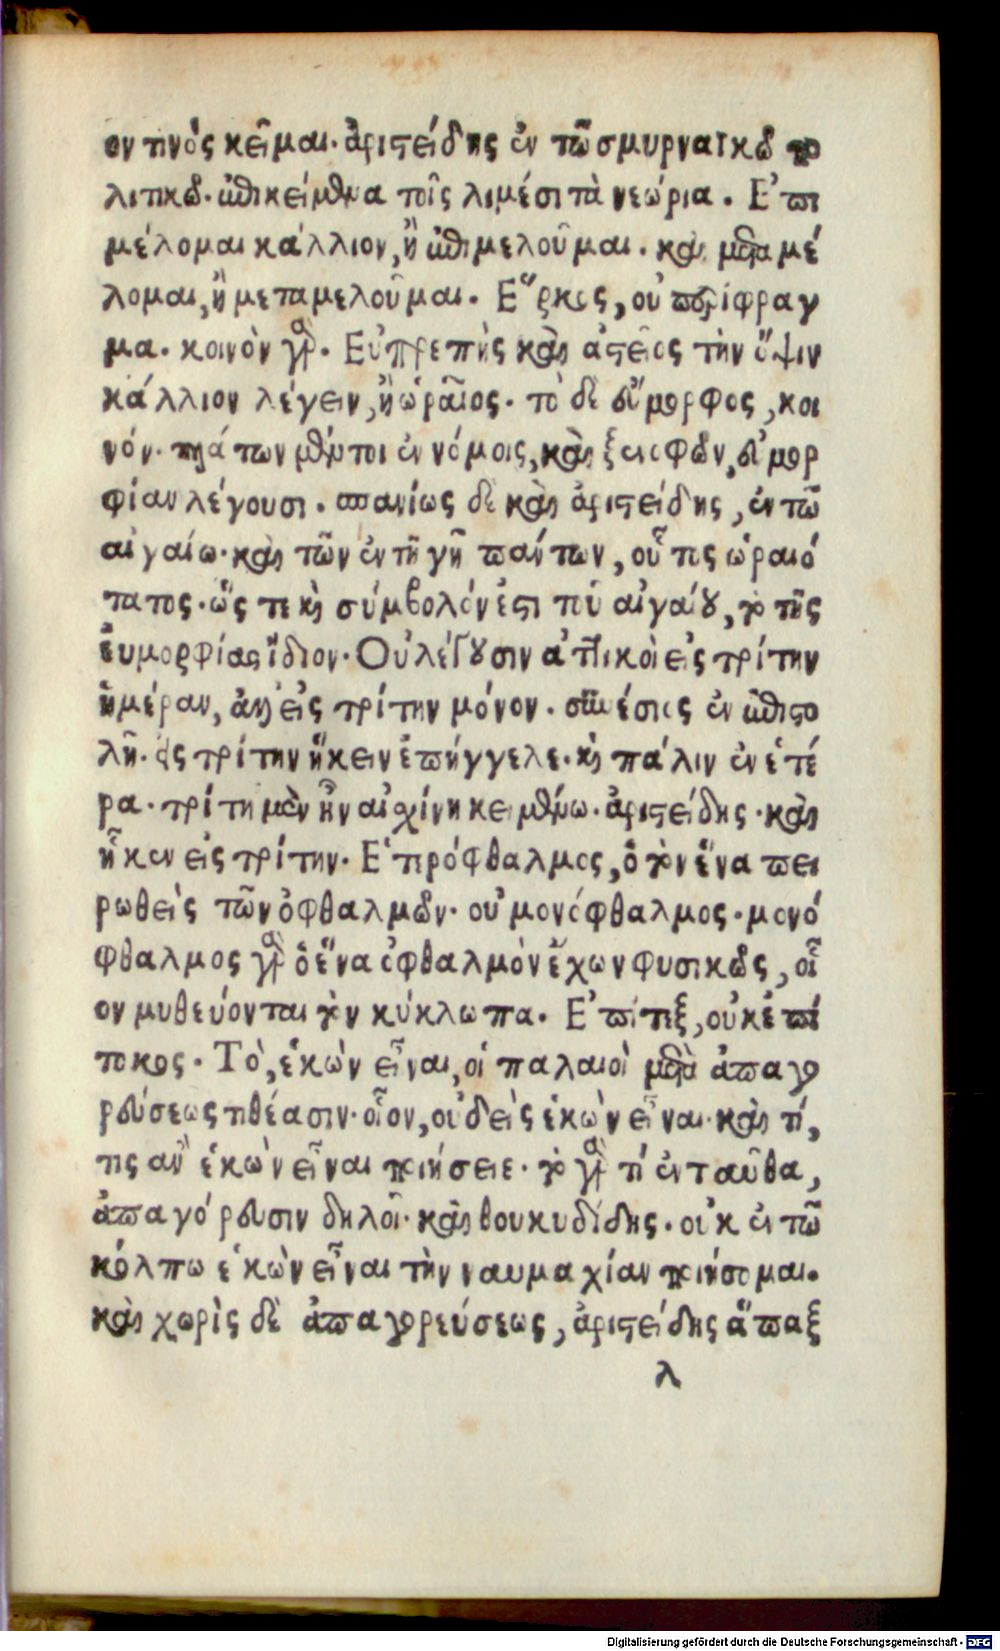 ον τινὸς κεῖμαι. ἀριστείδης ἐν τῶ σμυρναϊκῶ πο
λιτικῶ. ἐπικείμενα τοῖς λιμέσι τὰ νεώρια. Ἐπι
μέλομαι κάλλιον, ἢ ἐπιμελοῦμαι. καὶ μεταμέ
λομαι, ἢ μεταμελοῦμαι. Ἕρκος, οὐ περίφραγ
μα. κοινὸν γάρ. Εὐπρεπὴς καὶ ἀστεῖος τὴν ὄψιν
κάλλιον λέγειν, ἢ ὡραῖος. τὸ δὲ εὔμορφος, κοι
νόν. πλάτων μέντοι ἐν νόμοις, καὶ ξενοφῶν, εὐμορ
φίαν λέγουσι. σπανίως δὲ καὶ ἀριστείδης, ἐν τῶ
αἰγαίω. καὶ τῶν ἐν τῆ γῆ πάντων, οὗτις ὡραιό
τατος. ὥς τι καὶ σύμβολόν ἐστι τοῦ αἰγαίου, τὸ τῆς
ἐυμορφίας ἴδιον. Οὐ λέγουσιν ἀττικοὶ εἰς τρίτην
ἡμέραν, ἀλλ' εἰς τρίτην μόνον. συνέσιος ἐν ἐπιστο
λῆ. ἐς τρίτην ἥκειν ἐπήγγελε. καὶ πάλιν ἐν ἑτέ
ρα. τρίτη μὲν ἦν αἰσχίνη κειμένω. ἀριστείδης. καὶ
ἧκον εἰς τρίτην. Ἑτερόφθαλμος, ὁ τὸν ἕνα πει
ρωθεὶς τῶν ὀφθαλμῶν. οὐ μονόφθαλμος. μονό
φθαλμος γὰρ ὁ ἕνα ὀφθαλμὸν ἔχων φυσικῶς, οἷ
ον μυθεύονται τὸν κύκλωπα. Ἐπίτεξ, οὐκ ἐπί
τοκος. Τὸ, ἑκὼν εἶναι, οἱ παλαιοὶ μετὰ ἀπαγο
ρεύσεως τιθέασιν. οἷον, οὐδεὶς ἑκὼν εἶναι. καὶ τί,
τις ἂν ἑκὼν εἶναι ποιήσειε. τὸ γὰρ τί ἐνταῦθα,
ἀπαγόρευσιν δηλοῖ. καὶ θουκυδίδης. οὐκ ἐν τῶ
κόλπω ἑκὼν εἶναι τὴν ναυμαχίαν ποιήσομαι.
καὶ χωρὶς δὲ ἀπαγορεύσεως, ἀριστείδης ἅπαξ
λ
Digitalisierung gefördert durch die Deutsche Forschungsgemeinschaft - DFG